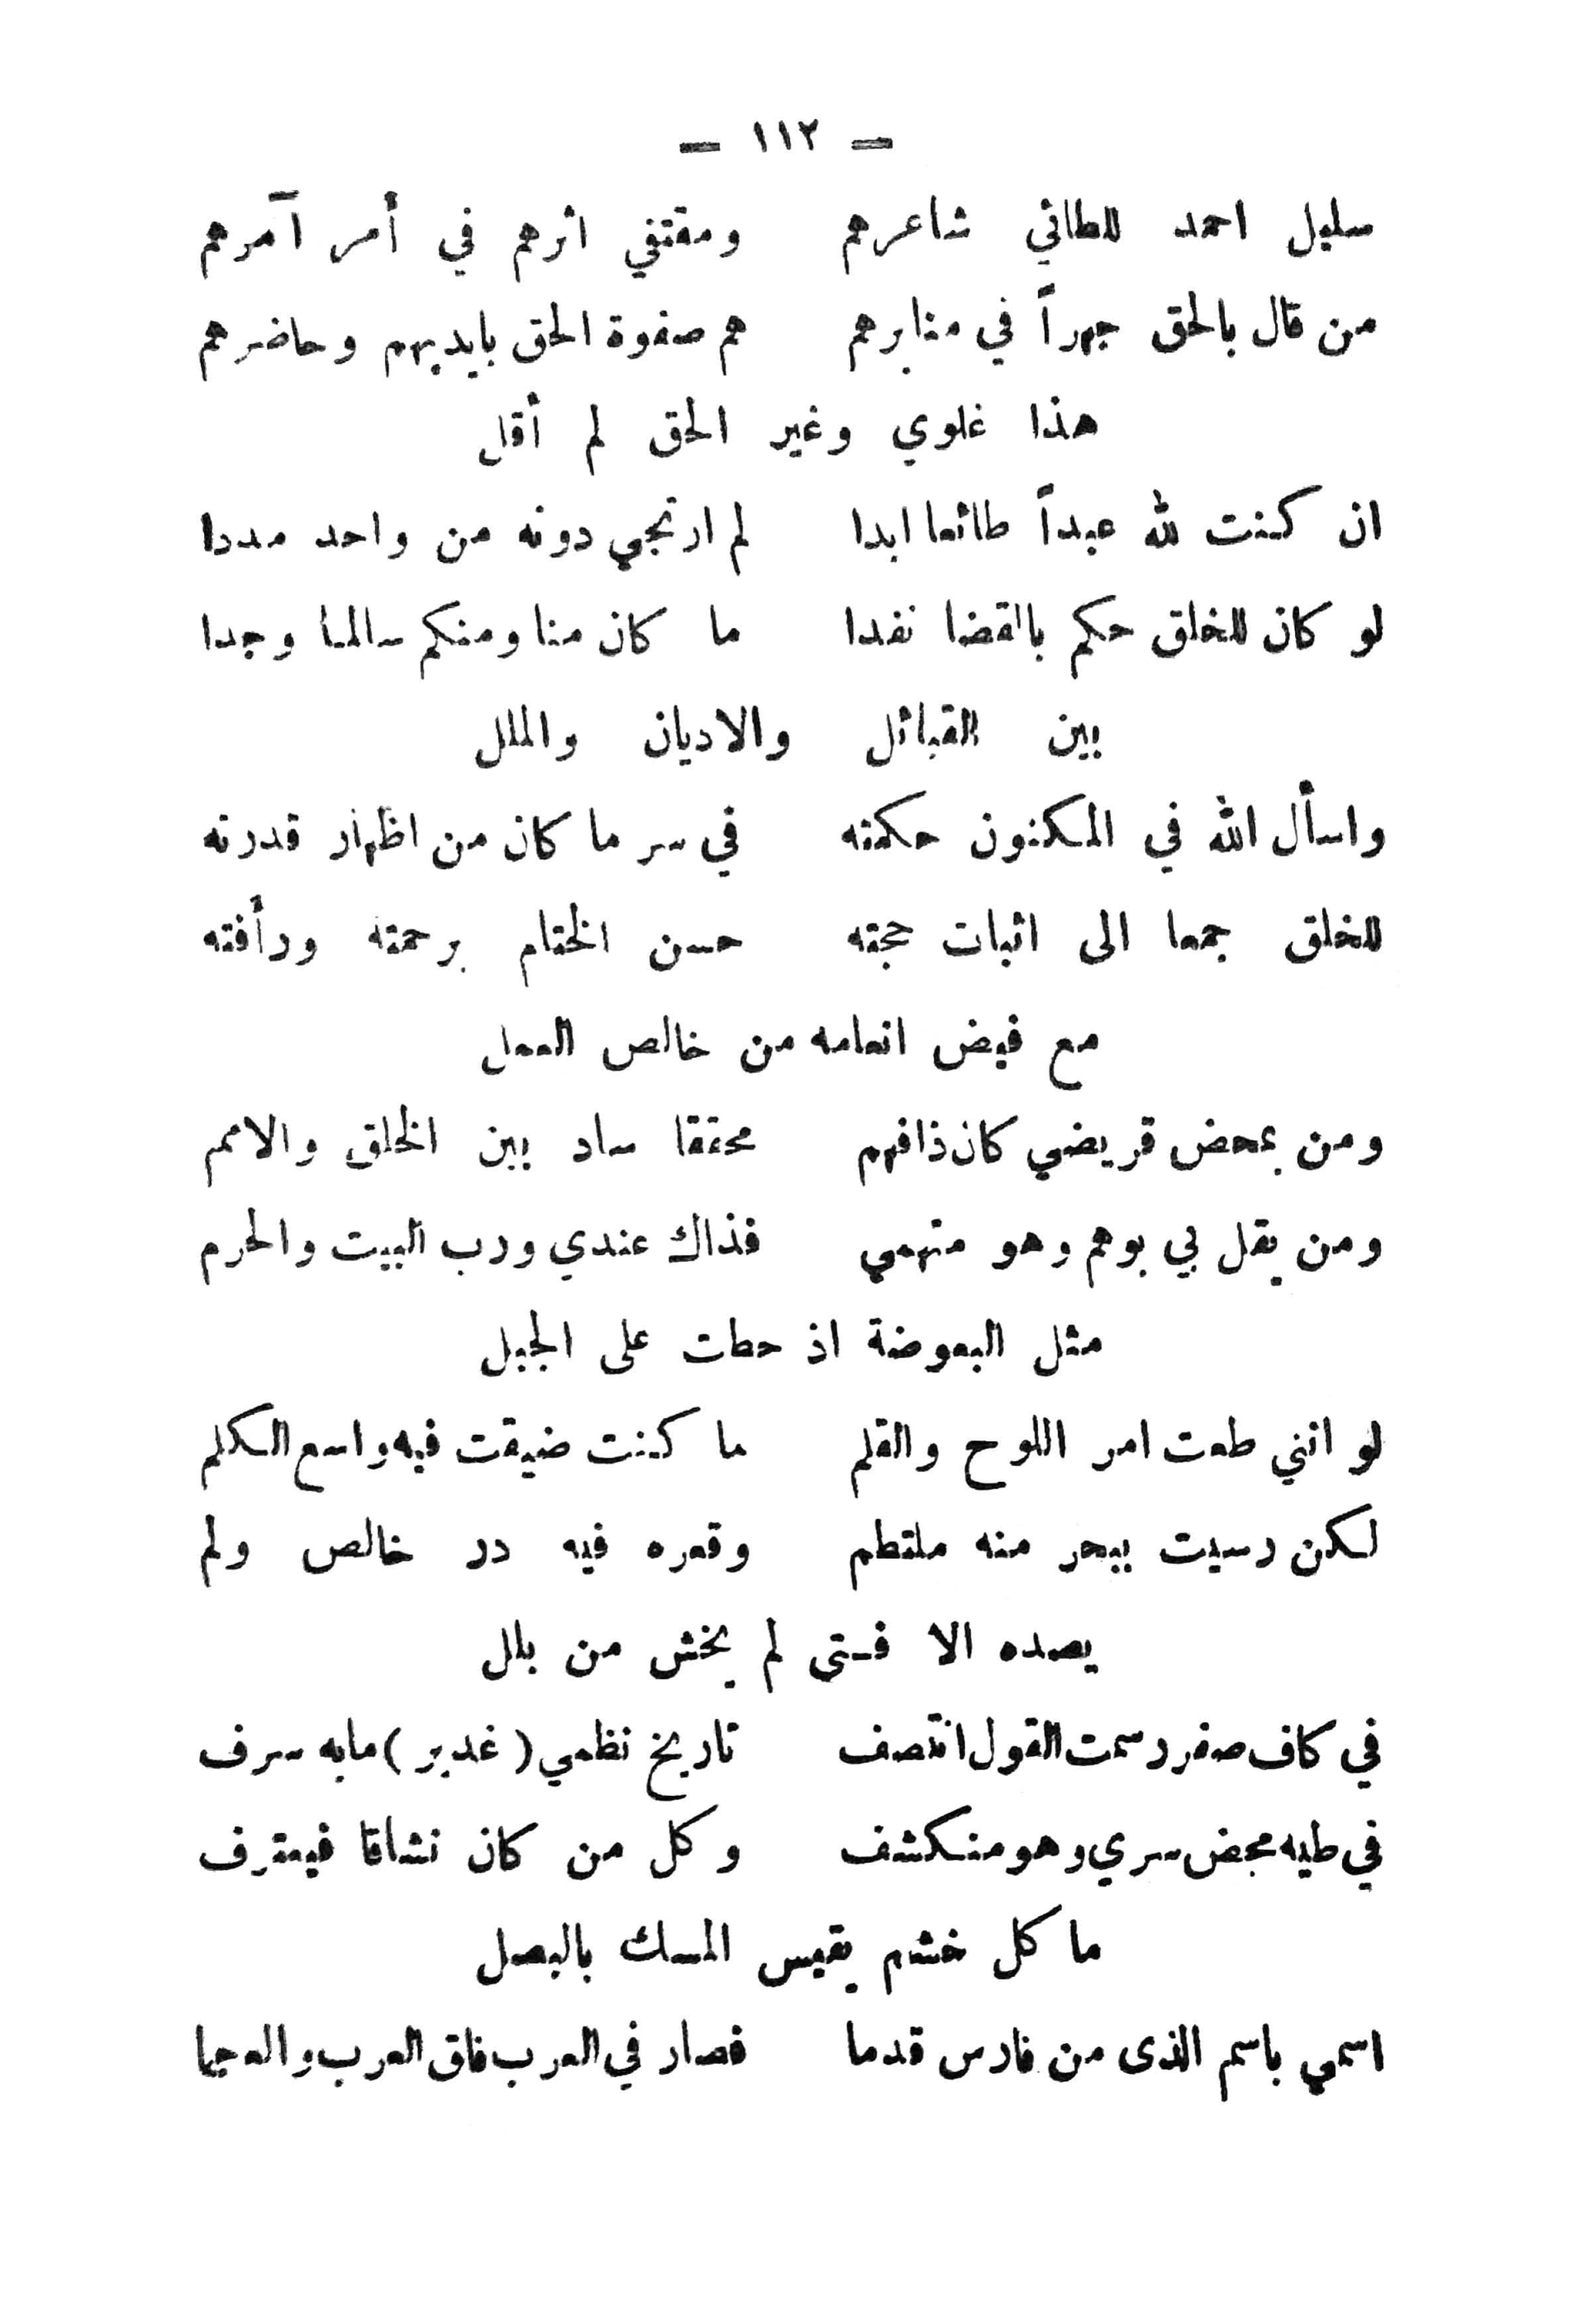 — ١١٢ —
سليل احمد للطائي شاعرهم ومقتفي اثرهم في أمر آمرهم
من قال بالحق جهراً في منابرهم هم صفوة الحق باديهم وحاضرهم
هذا غلوي وغير الحق لم أقل
ان كنت لله عبداً طائعا ابدا لم ارتجي دونه من واحد مددا
لو كان للخلق حكم بالقضا نفدا ما كان منا ومنكم سالما وجدا
بين القبائل والاديان والملل
واسأل الله في المكنون حكمته في سر ما كان من اظهار قدرته
للخلق جمعا الى اثبات حجته حسن الختام برحمته ورأفته
مع فيض انعامه من خالص العمل
ومن بمحض قريضي كان ذافهم محققا ساد بين الخلق والامم
ومن يقل بي بوهم وهو متهمي فذاك عندي ورب البيت والحرم
مثل البعوضة اذ حطت على الجبل
لو انني طعت امر اللوح والقلم ما كنت ضيقت فيه واسع الكلم
لكن رسيت ببحر منه ملتطم وقعره فيه در خالص ولم
يصده الا فتى لم يخش من بلل
في كاف صفر رسمت القول انتصف تاريخ نظمي (غدير) مابه سرف
في طيه محض سري وهو منكشف وكل من كان نشاقا فيعترف
ما كل خشم يقيس المسك بالبصل
اسمي باسم الذى من فارس قدما فصار في العرب فاق العرب والعجما